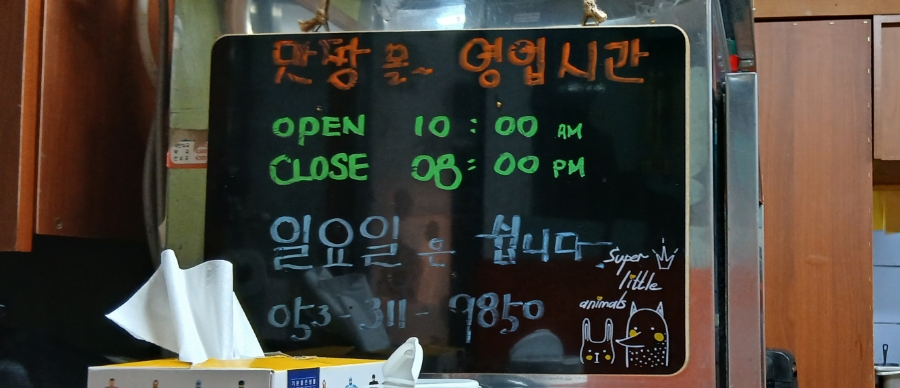 맛짱 몰~ 영업시간
OPEN 10 : 00 AM
CLOSE 08 : 00 PM
일요일은 쉽니다
053-311-9850
Super
little
animals